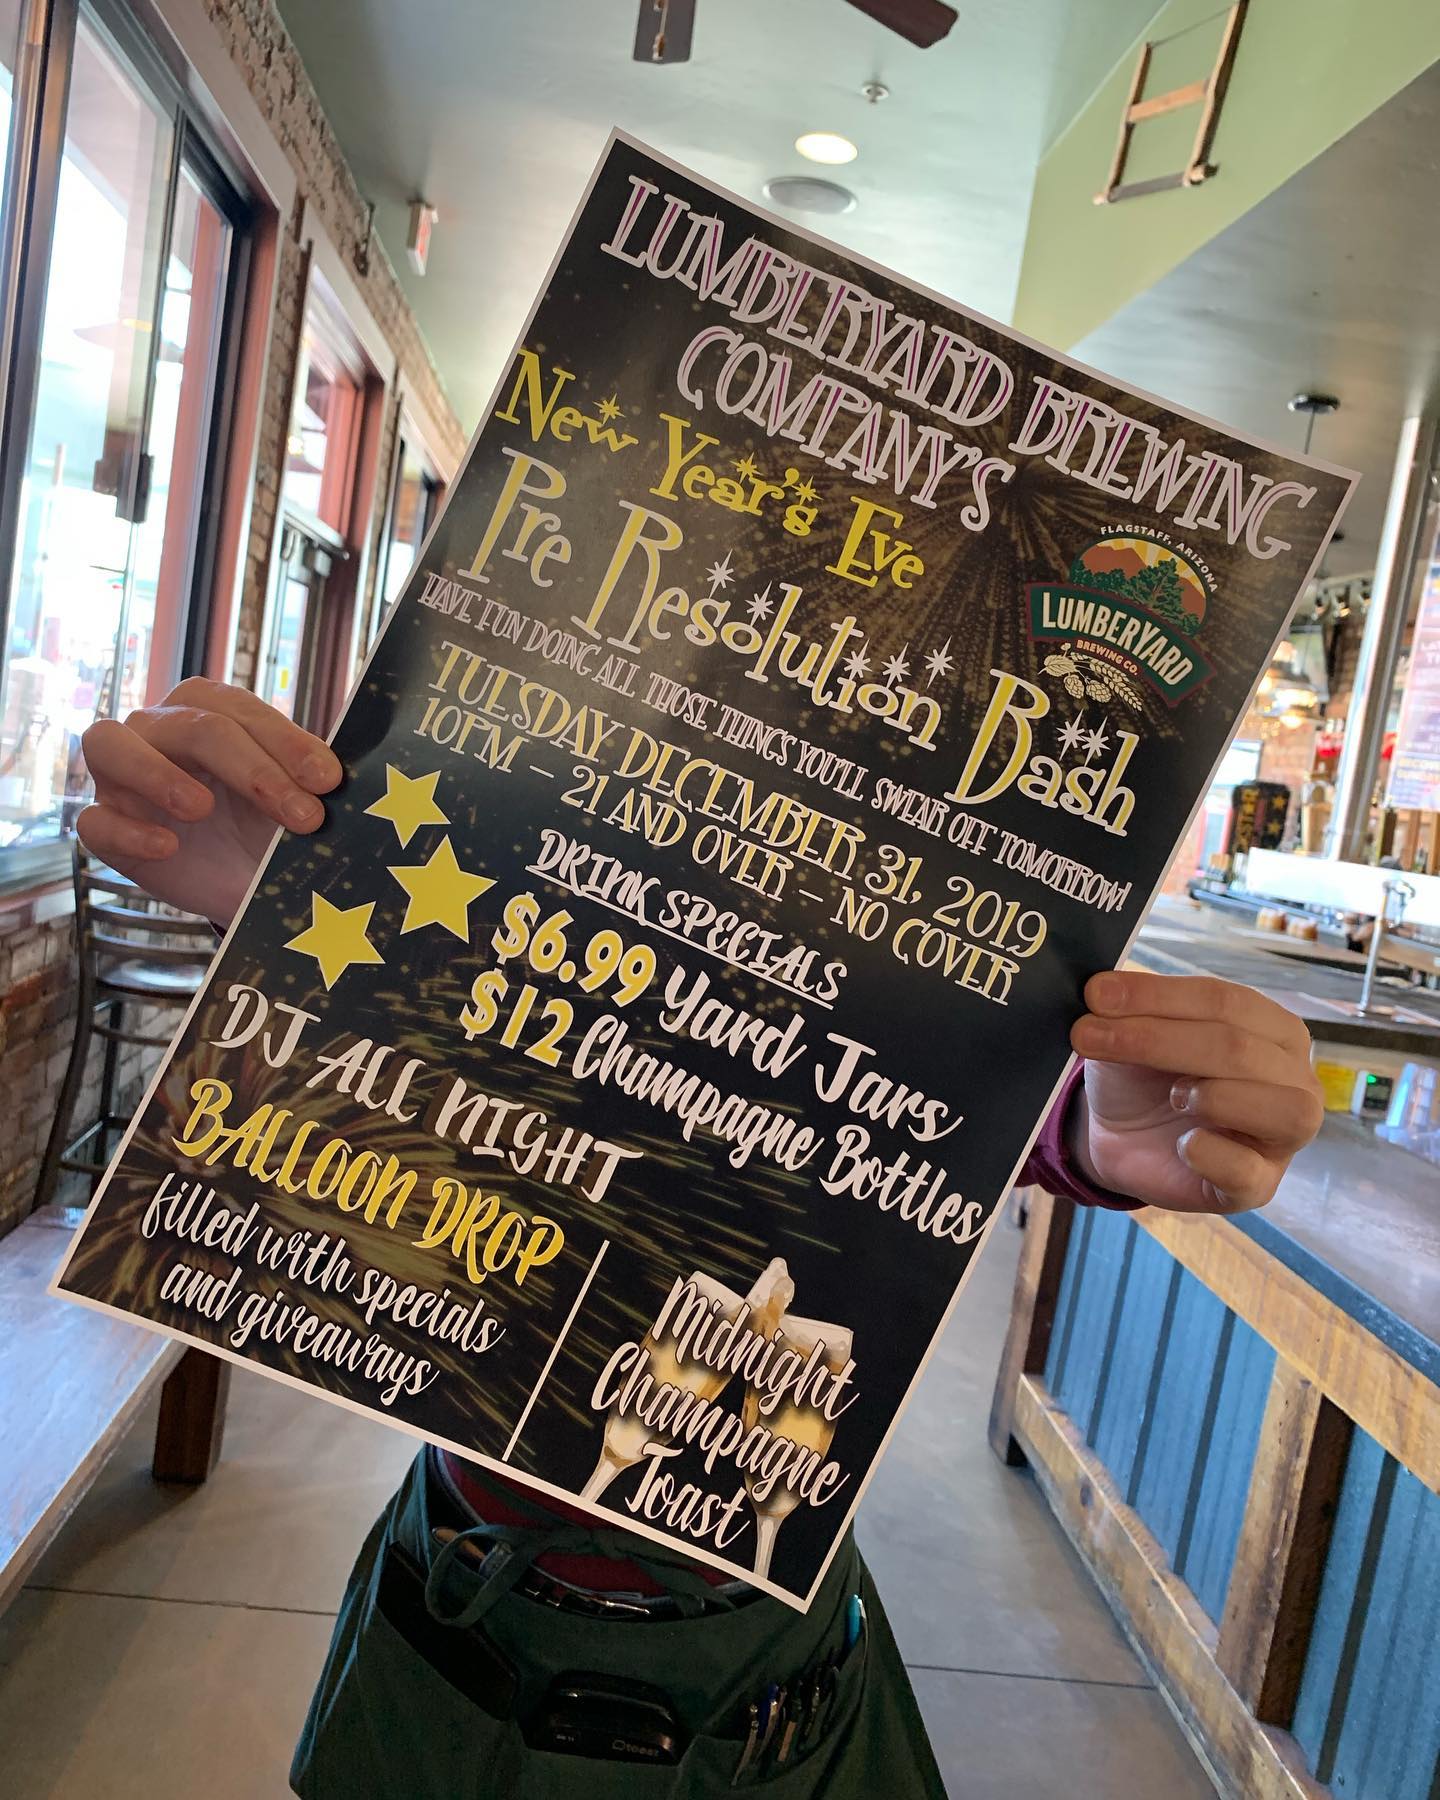 LUMBERYARD BREWING
COMPANY'S
New Year's Eve
Pre Resolution Bash
HAVE FUN DOING ALL THOSE THINGS YOU'LL SWEAR OFF TOMORROW!
FLAGSTAFF, ARIZONA
LUMBERYARD
BREWING CO.
TUESDAY DECEMBER 31, 2019
10PM – 21 AND OVER – NO COVER
DRINK SPECIALS
$6.99 Yard Jars
$12 Champagne Bottles
DJ ALL NIGHT
BALLOON DROP
filled with specials
and giveaways
Midnight
Champagne
Toast
toast